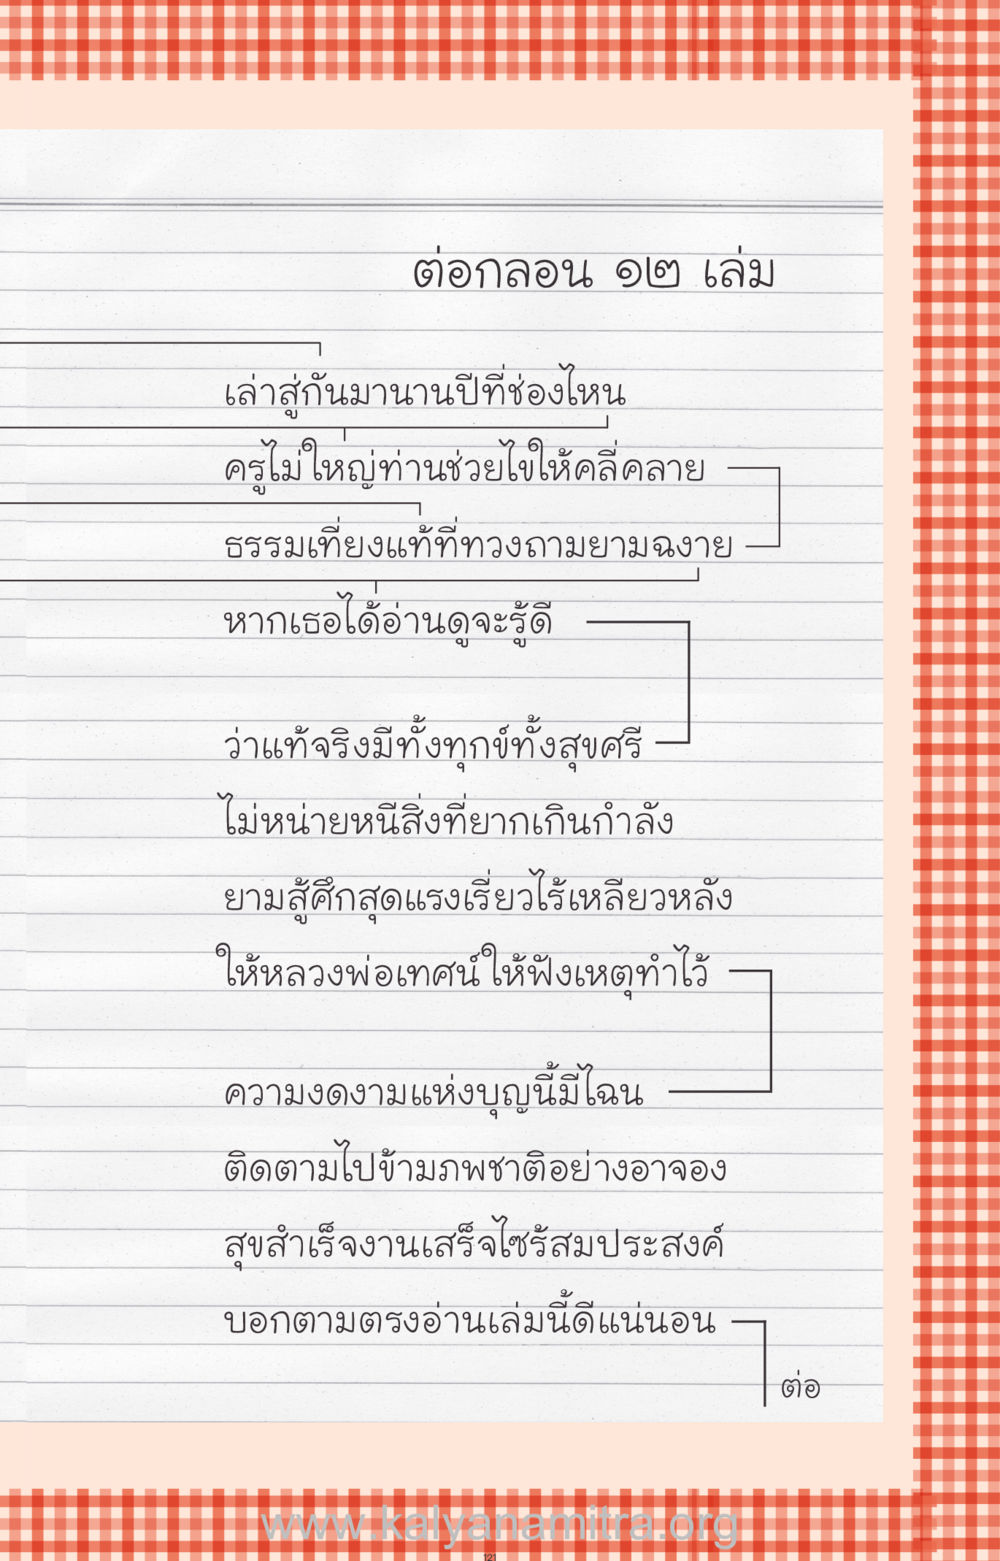 ต่อกลอน ๑๒ เล่ม
เล่าสู่กันมานานปีที่ช่องไหน
ครูไม่ใหญ่ท่านช่วยไขให้คลี่คลาย
ธรรมเที่ยงแท้ที่ทวงถามยามฉงาย
หากเธอได้อ่านดูจะรู้ดี
ว่าแท้จริงมีทั้งทุกข์ทั้งสุขศรี
ไม่หน่ายหนีสิ่งที่ยากเกินกำลัง
ยามสู้ศึกสุดแรงเรี่ยวไร้เหลียวหลัง
ให้หลวงพ่อเทศน์ให้ฟังเหตุทำไว้
ความงดงามแห่งบุญนี้มีไฉน
ติดตามไปข้ามภพชาติอย่างอาจอง
สุขสำเร็จงานเสร็จไซร้สมประสงค์
บอกตามตรงอ่านเล่มนี้ดีแน่นอน
ต่อ
www.kalyanamitra.org
121